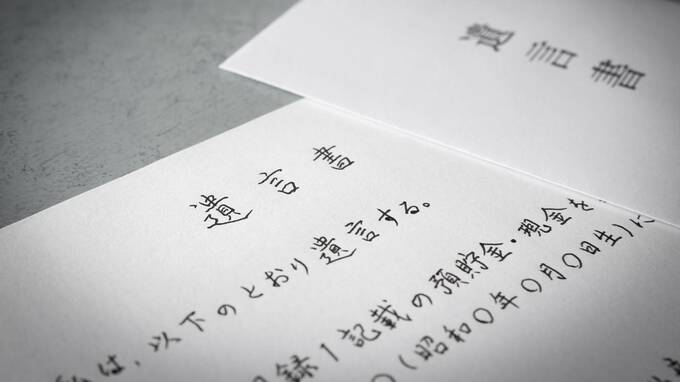 遺言書
遺言書
私は、以下のとおり遺言する。
録1記載の預貯金・現金を
(昭和〇年〇月〇日生)に